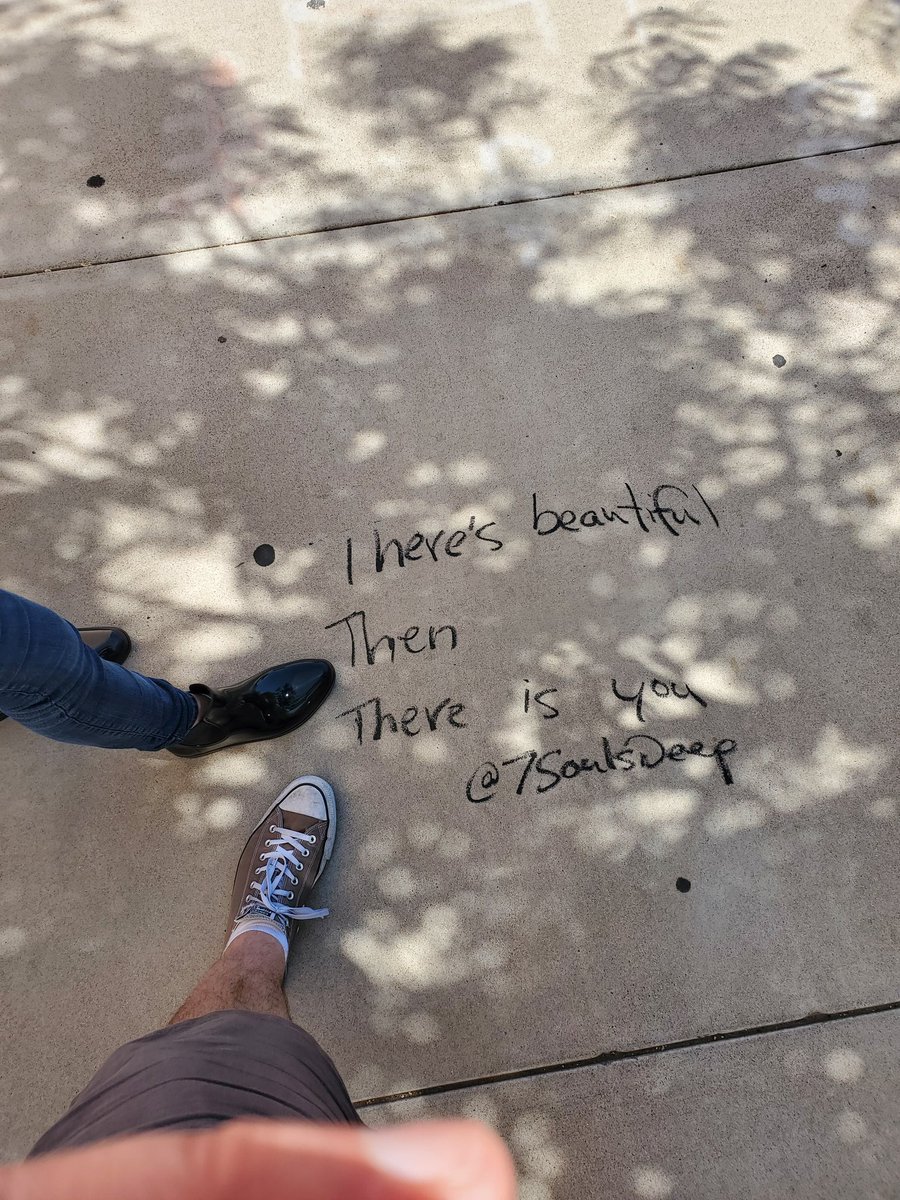 There's beautiful
Then
There is you
@7SoulsDeep